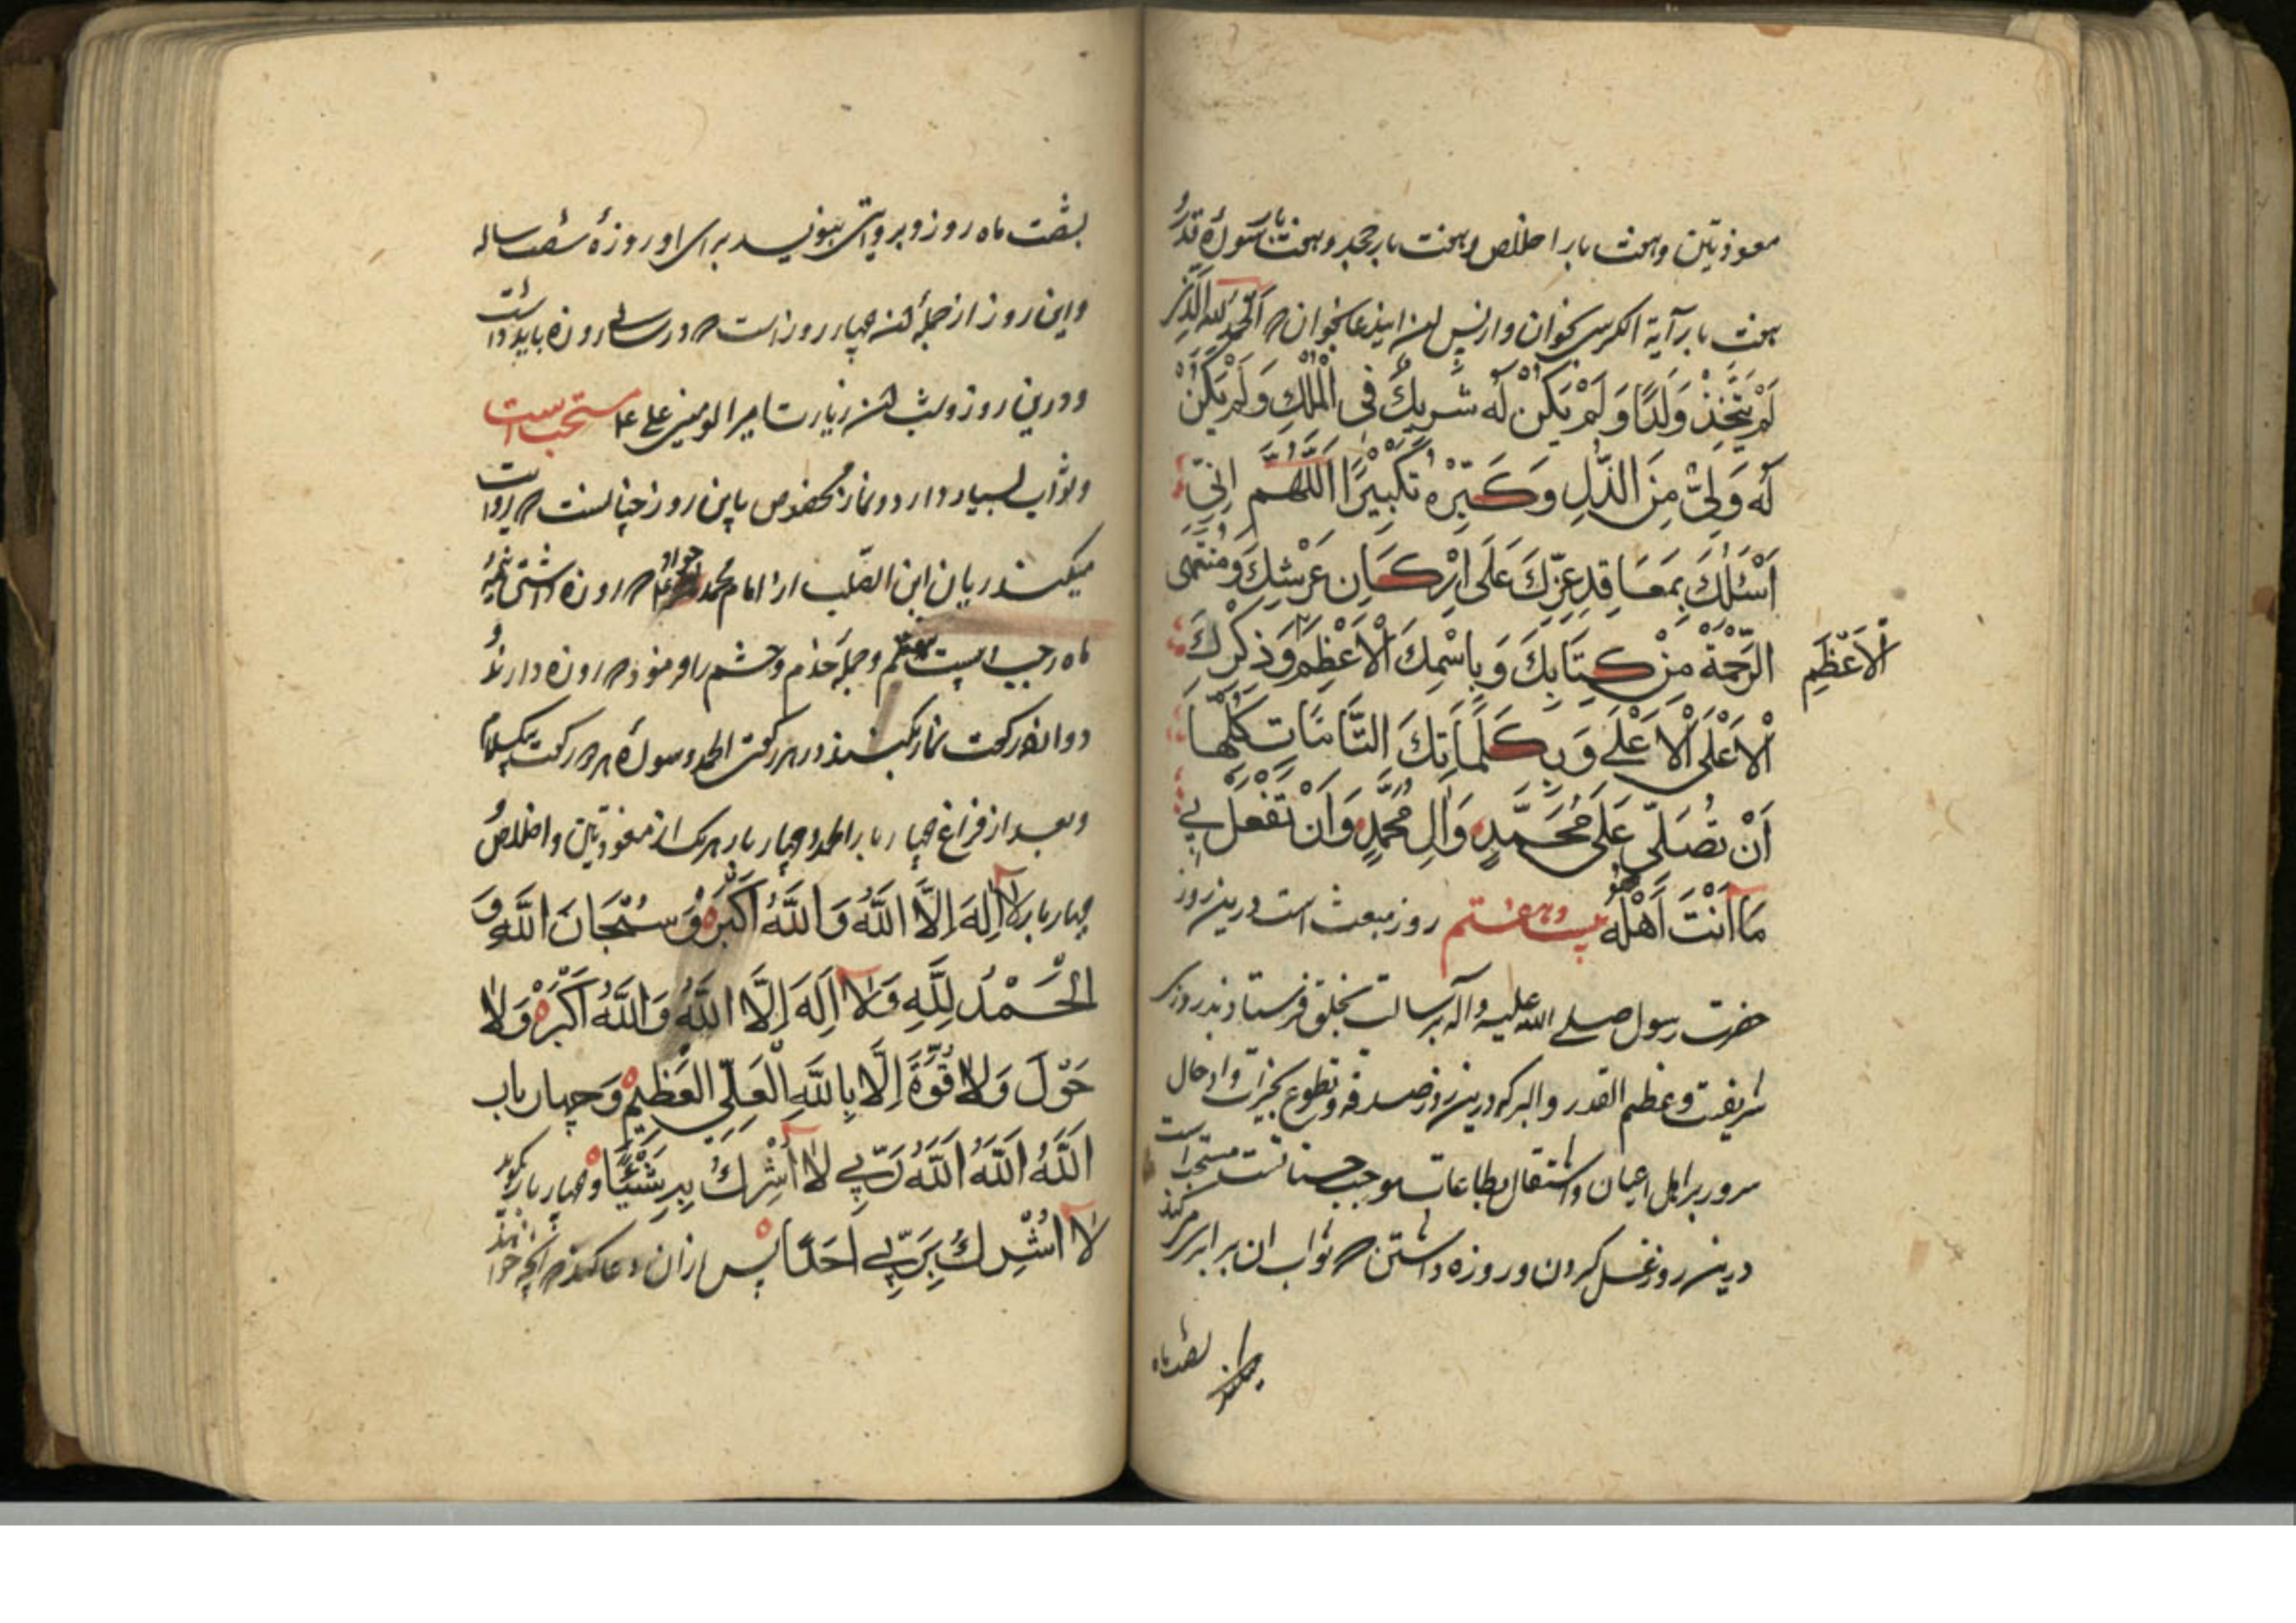 معوذتین وهفت بار اخلاص وهفت بار جحد وهفت بار سورهٔ قدر
هفت بار آیة الکرسی بخوان وازپس این دعا بخوان که اَلْحَمْدُ لِلّٰهِ الَّذِی
لَمْ یَتَّخِذْ وَلَدًا وَلَمْ یَکُنْ لَهُ شَرِیكٌ فِی الْمُلْكِ وَلَمْ یَکُنْ
لَهُ وَلِیٌّ مِنَ الذُّلِ وَکَبِّرْهُ تَکْبِیْرًا اَللّٰهُمَّ اِنِّی
اَسْئَلُكَ بِمَعَاقِدِ عِزِّكَ عَلَی اَرْکَانِ عَرْشِكَ وَمُنْتَهَی
الرَّحْمَةِ مِنْ کِتَابِكَ وَبِاسْمِكَ الْاَعْظَمِ وَذِکْرِكَ
الْاَعْظَمِ
الْاَعْلَی الْاَعْلَی وَبِکَلِمَاتِكَ التَّامَّاتِ کُلِّهَا
اَنْ تُصَلِّیَ عَلَی مُحَمَّدٍ وَآلِ مُحَمَّدٍ وَاَنْ تَفْعَلَ بِی
مَا اَنْتَ اَهْلُهُ بیست وهفتم روز مبعث است درین روز
حضرت رسول صلی الله علیه وآله برسالت بخلق فرستادند روز
شریفست وعظیم القدر والبرکه درین روز صدقه وتطوع بخیرات وادخال
سرور بر اهل ایمان واشتغال بطاعات موجب حسناتست مستحب است
درین روز غسل کردن وروزه داشتن که ثواب ان برابری میکند
بشصت ماه
بشصت ماه روزه وبروایتی بنویسد برای او روزهٔ شصت ساله
واین روز از جملهٔ ان چهار روز است که در سالی روزه باید داشت
ودرین روز وشب ان زیارت امیر المومنین علی ع مستحب است
وثواب بسیار دارد ونماز مخصوص باین روز چنانست که روایت
میکند ریان ابن الصلت از امام محمد جواد که روزه داشتی
ماه رجب بیست هفتم وجمله خدم وحشم را فرمود که روزه دارند
دوازده رکعت نماز بکنند در هر رکعتی الحمد وسوره هر دو رکعت بیکسلام
وبعد از فراغ چهار بار الحمد وچهار بار هریک از معوذتین واخلاص
چهار بار لَا اِلَهَ اِلَّا اللّٰهُ وَاللّٰهُ اَکْبَرُ وَسُبْحَانَ اللّٰهِ وَ
الْحَمْدُ لِلّٰهِ وَلَا اِلَهَ اِلَّا اللّٰهُ وَاللّٰهُ اَکْبَرُ وَلَا
حَوْلَ وَلَا قُوَّةَ اِلَّا بِاللّٰهِ الْعَلِیِّ الْعَظِیْمِ وَچهار بار
اَللّٰهُ اَللّٰهُ اَللّٰهُ رَبِّی لَا اُشْرِكُ بِهِ شَیْئًا وچهار بار بگوید
لَا اُشْرِكُ بِرَبِّی اَحَدًا پس ازان دعا کند هر انچه خواهند